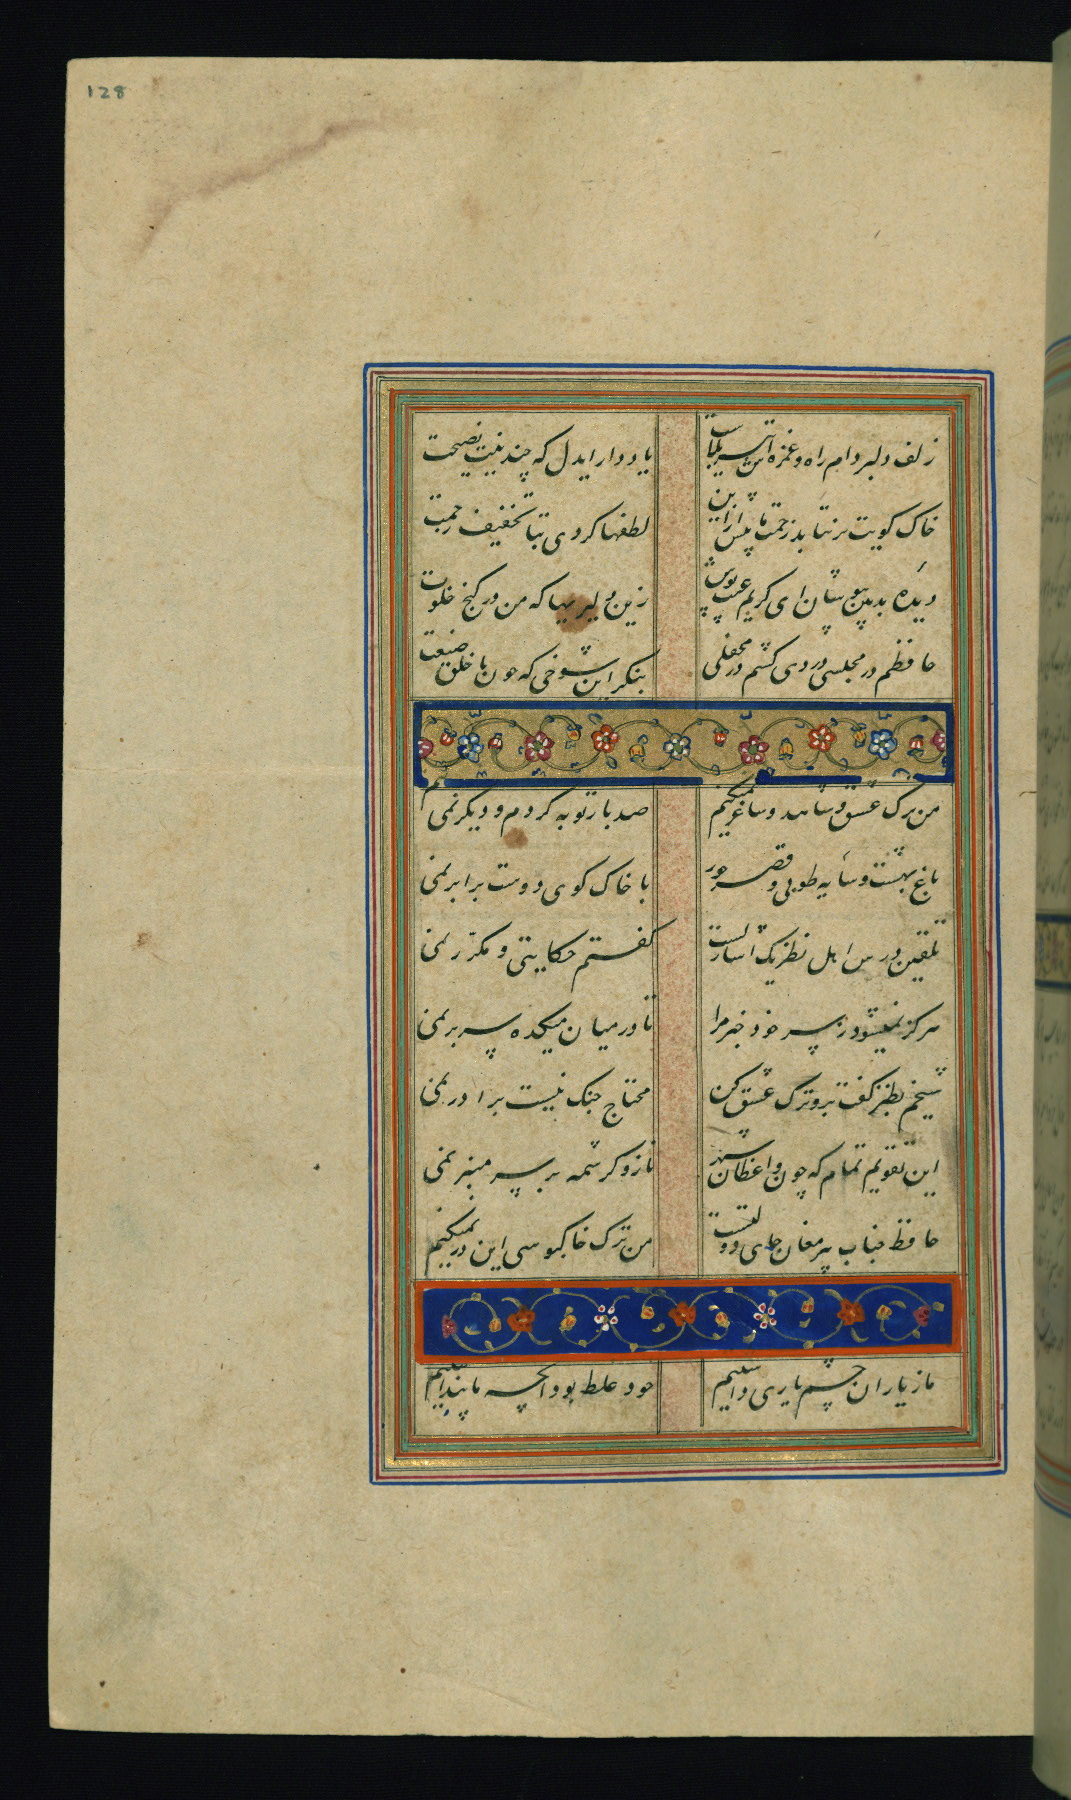 128
زلف دلبر دام راه و غمزه اش تیر بلاست
یاد دار ایدل که چندینت نصیحت
خاک کویت برنتابد زحمت ما بیش ازین
لطفها کردی بتا تخفیف زحمت
دیدهٔ بدبین بپوشان ای کریم عیب پوش
زین دلیریها که من در کنج خلوت
حافظم در مجلسی دردی کشم در محفلی
بنکر این شوخی که چون با خلق صنعت
من ترک عشق و شاهد و ساغر نمیکنم
صد بار توبه کردم و دیکر نمی
باغ بهشت و سایه طوبی و قصر حور
با خاک کوی دوست برابر نمی
تلقین درس اهل نظر یک اشارتست
کفتم حکایتی و مکرّر نمی
هرکز نمیشود ز سر خود خبر مرا
تا در میان میکده سر بر نمی
شیخم بطنز کفت برو ترک عشق کن
محتاج جنک نیست برادر نمی
این تقویم تمام که چون واعظان شهر
ناز و کرشمه بر سر منبر نمی
حافظ جناب پیر مغان جای دولتست
من ترک خاکبوسی این در نمیکنم
ما ز یاران چشم یاری داشتیم
خود غلط بود آنچه ما پنداشتیم